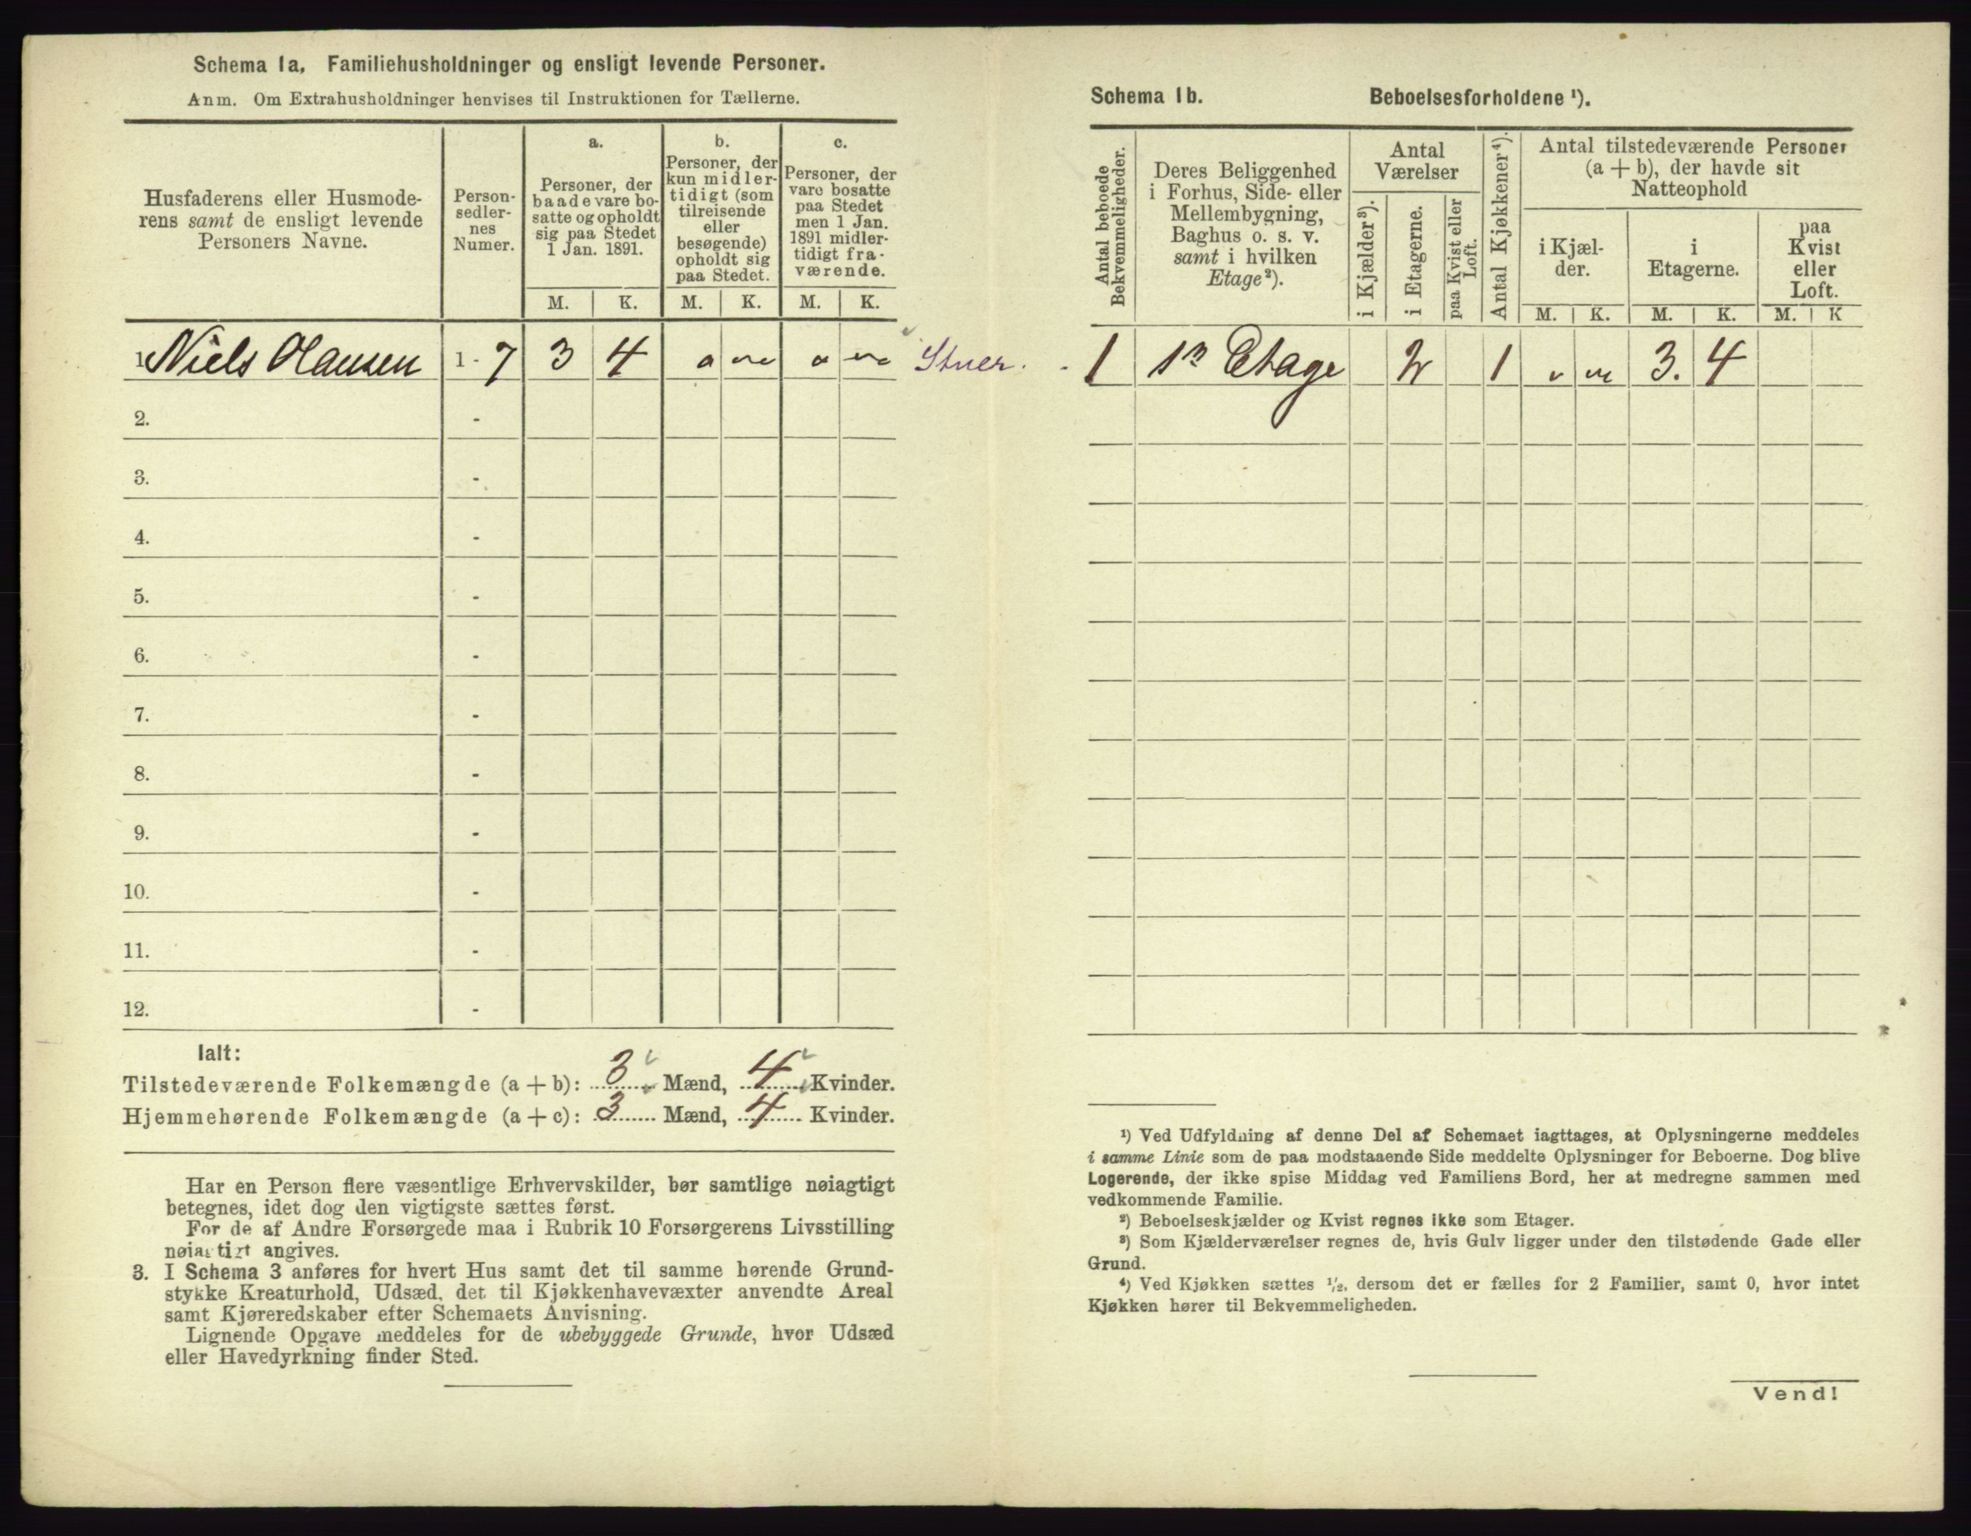 Schema 1a. Familiehusholdninger og ensligt levende Personer.
Anm. Om Extrahusholdninger henvises til Instruktionen for Tællerne.
Husfaderens eller Husmoderens samt de ensligt levende Personers Navne.
Personsedlernes Numer.
a.
Personer, der baade vare bosatte og opholdt sig paa Stedet 1 Jan. 1891.
b.
Personer, der kun midlertidigt (som tilreisende eller besøgende) opholdt sig paa Stedet.
c.
Personer, der vare bosatte paa Stedet men 1 Jan. 1891 midlertidigt fraværende.
M. K. M. K. M. K.
1. Niels Olausen 1 - 7 3 4
2. -
3. -
4. -
5. -
6. -
7. -
8. -
9. -
10. -
11. -
12. -
Ialt:
Tilstedeværende Folkemængde (a + b): 3 Mænd, 4 Kvinder.
Hjemmehørende Folkemængde (a + c): 3 Mænd, 4 Kvinder.
Har en Person flere væsentlige Erhvervskilder, bør samtlige nøiagtigt
betegnes, idet dog den vigtigste sættes først.
For de af Andre Forsørgede maa i Rubrik 10 Forsørgerens Livsstilling
nøiagtigt angives.
3. I Schema 3 anføres for hvert Hus samt det til samme hørende Grund-
stykke Kreaturhold, Udsæd, det til Kjøkkenhavevæxter anvendte Areal
samt Kjøreredskaber efter Schemaets Anvisning.
Lignende Opgave meddeles for de ubebyggede Grunde, hvor Udsæd
eller Havedyrkning finder Sted.
Schema 1b. Beboelsesforholdene ¹).
Antal beboede Bekvemmeligheder.
Deres Beliggenhed i Forhus, Side- eller Mellembygning, Baghus o. s. v. samt i hvilken Etage²).
Antal Værelser
i Kjælder³).
i Etagerne.
paa Kvist eller Loft.
Antal Kjøkkener⁴).
Antal tilstedeværende Personer (a + b), der havde sit Natteophold
i Kjælder.
i Etagerne.
paa Kvist eller Loft.
M. K. M. K. M. K
1 1ste Etage 2 1 3. 4
¹) Ved Udfyldning af denne Del af Schemaet iagttages, at Oplysningerne meddeles
i samme Linie som de paa modstaaende Side meddelte Oplysninger for Beboerne. Dog blive
Logerende, der ikke spise Middag ved Familiens Bord, her at medregne sammen med
vedkommende Familie.
²) Beboelseskjælder og Kvist regnes ikke som Etager.
³) Som Kjælderværelser regnes de, hvis Gulv ligger under den tilstødende Gade eller
Grund.
⁴) Ved Kjøkken sættes ¹/₂, dersom det er fælles for 2 Familier, samt 0, hvor intet
Kjøkken hører til Bekvemmeligheden.
Vend!